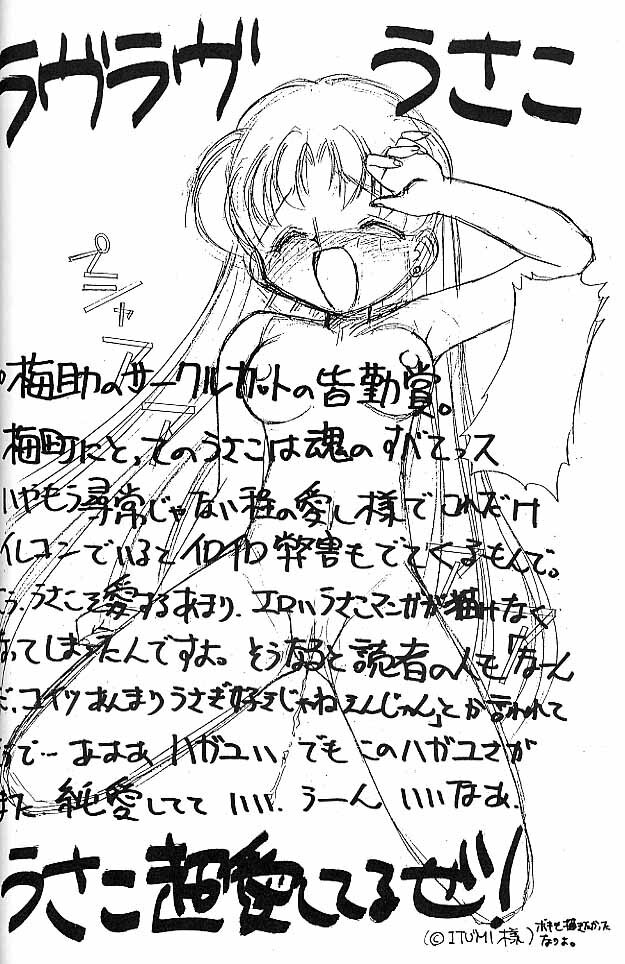 ラヴラヴ うさこ
ペシャアーー
梅助のサークルカットの皆勤賞。
梅町にとってのうさこは魂のすべてっス
いやもう尋常じゃない程の愛し様でこれだけ
イレコンでいるとイロイロ弊害もでてくるもんで。
うさこを愛するあまり、エロいうさこマンガが描けなく
なってしまったんですよ。そうなると読者の人も「なーん
だ、コイツあんまりうさぎ好きじゃねえんじゃん」とか言われて
あああ ハガユい でもこのハガユさが
また純愛してていい。うーんいいなあ。
うさこ超愛してるぜ!
(©ITUMI様)
なりよ。